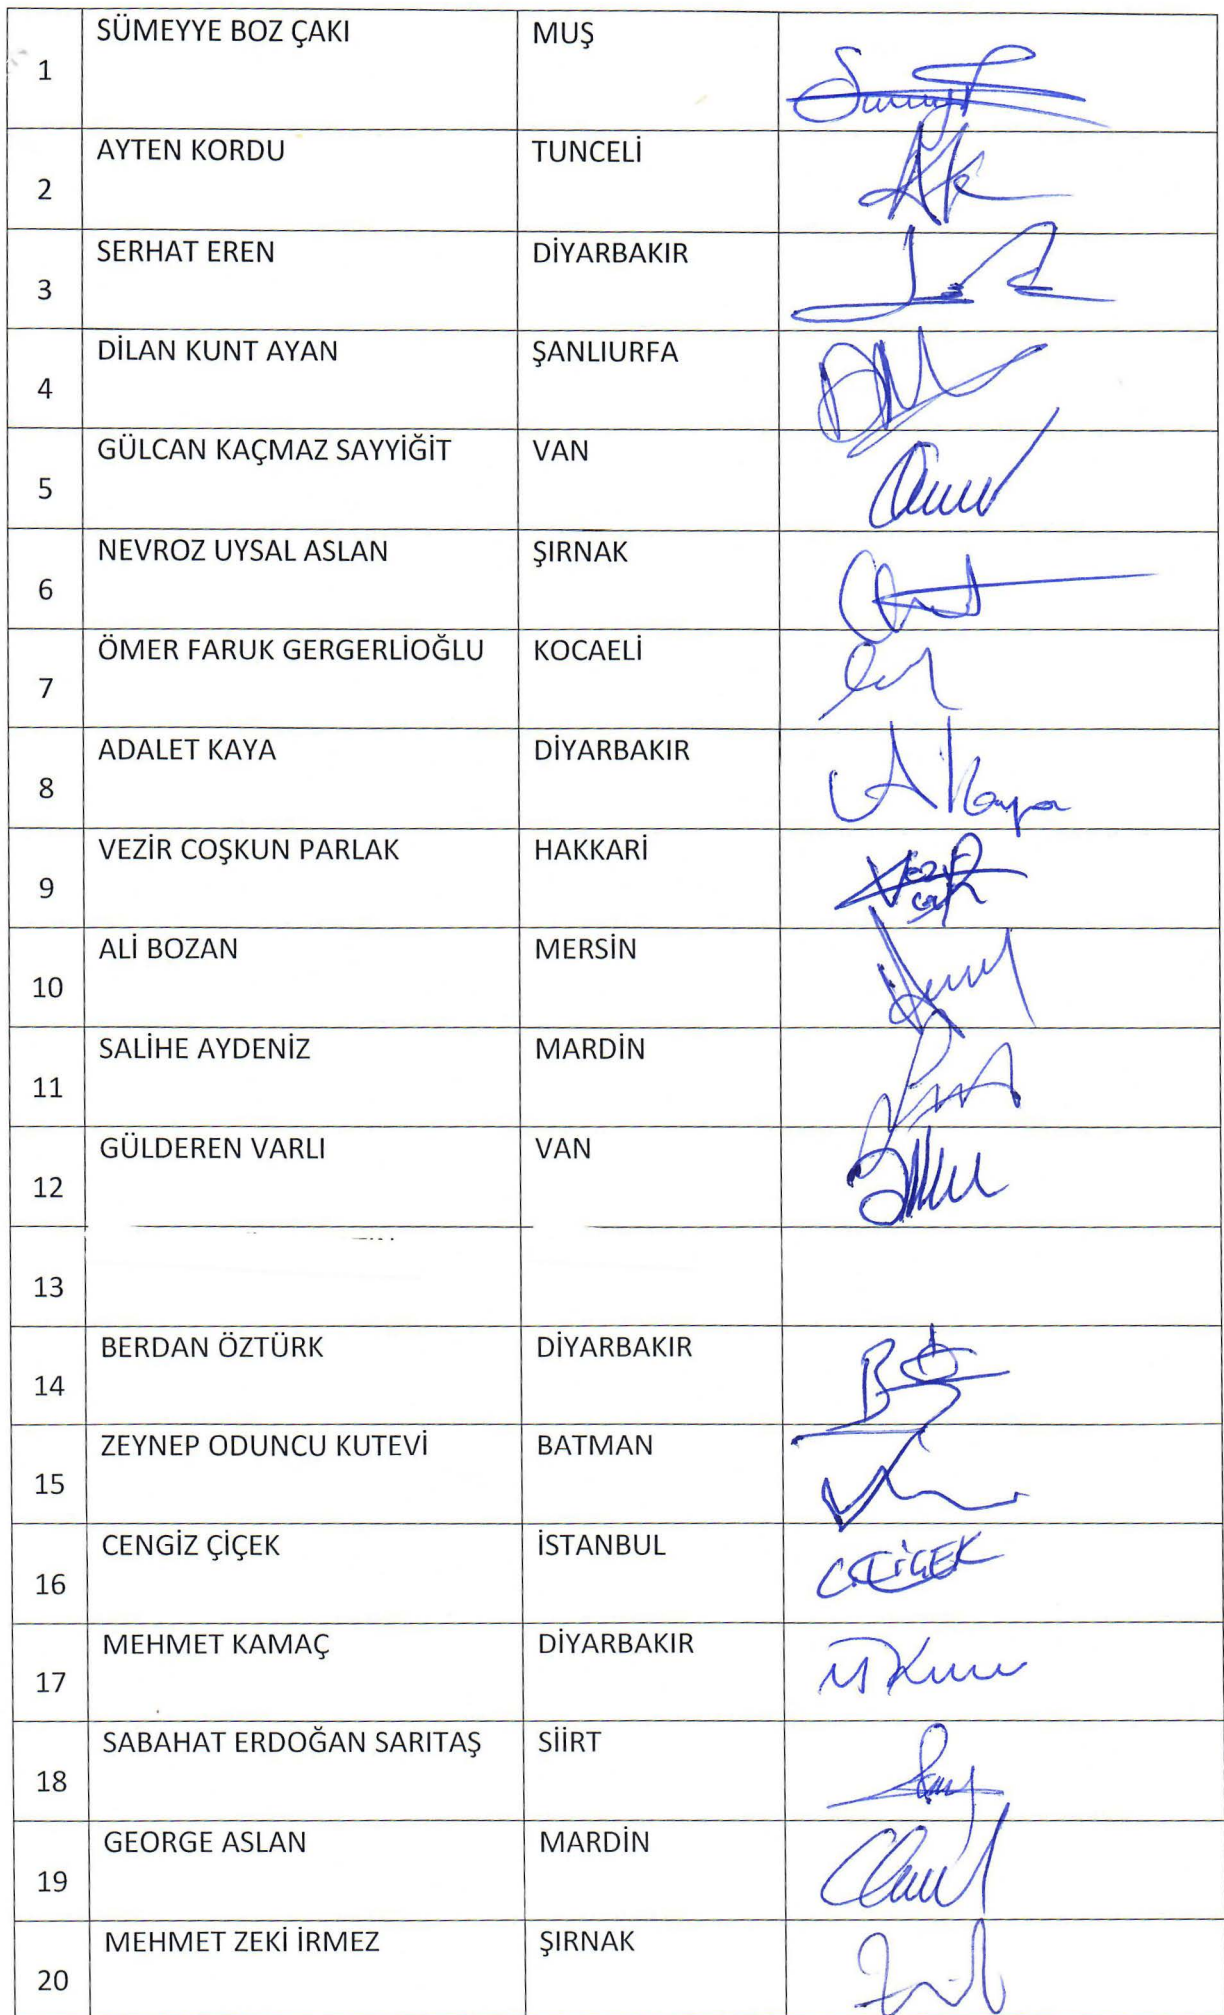 1 SÜMEYYE BOZ ÇAKI MUŞ
2 AYTEN KORDU TUNCELİ
3 SERHAT EREN DİYARBAKIR
4 DİLAN KUNT AYAN ŞANLIURFA
5 GÜLCAN KAÇMAZ SAYYİĞİT VAN
6 NEVROZ UYSAL ASLAN ŞIRNAK
7 ÖMER FARUK GERGERLİOĞLU KOCAELİ
8 ADALET KAYA DİYARBAKIR A Kaya
9 VEZİR COŞKUN PARLAK HAKKARİ
10 ALİ BOZAN MERSİN
11 SALİHE AYDENİZ MARDİN
12 GÜLDEREN VARLI VAN
13
14 BERDAN ÖZTÜRK DİYARBAKIR
15 ZEYNEP ODUNCU KUTEVİ BATMAN
16 CENGİZ ÇİÇEK İSTANBUL C.ÇİÇEK
17 MEHMET KAMAÇ DİYARBAKIR
18 SABAHAT ERDOĞAN SARITAŞ SİİRT
19 GEORGE ASLAN MARDİN
20 MEHMET ZEKİ İRMEZ ŞIRNAK